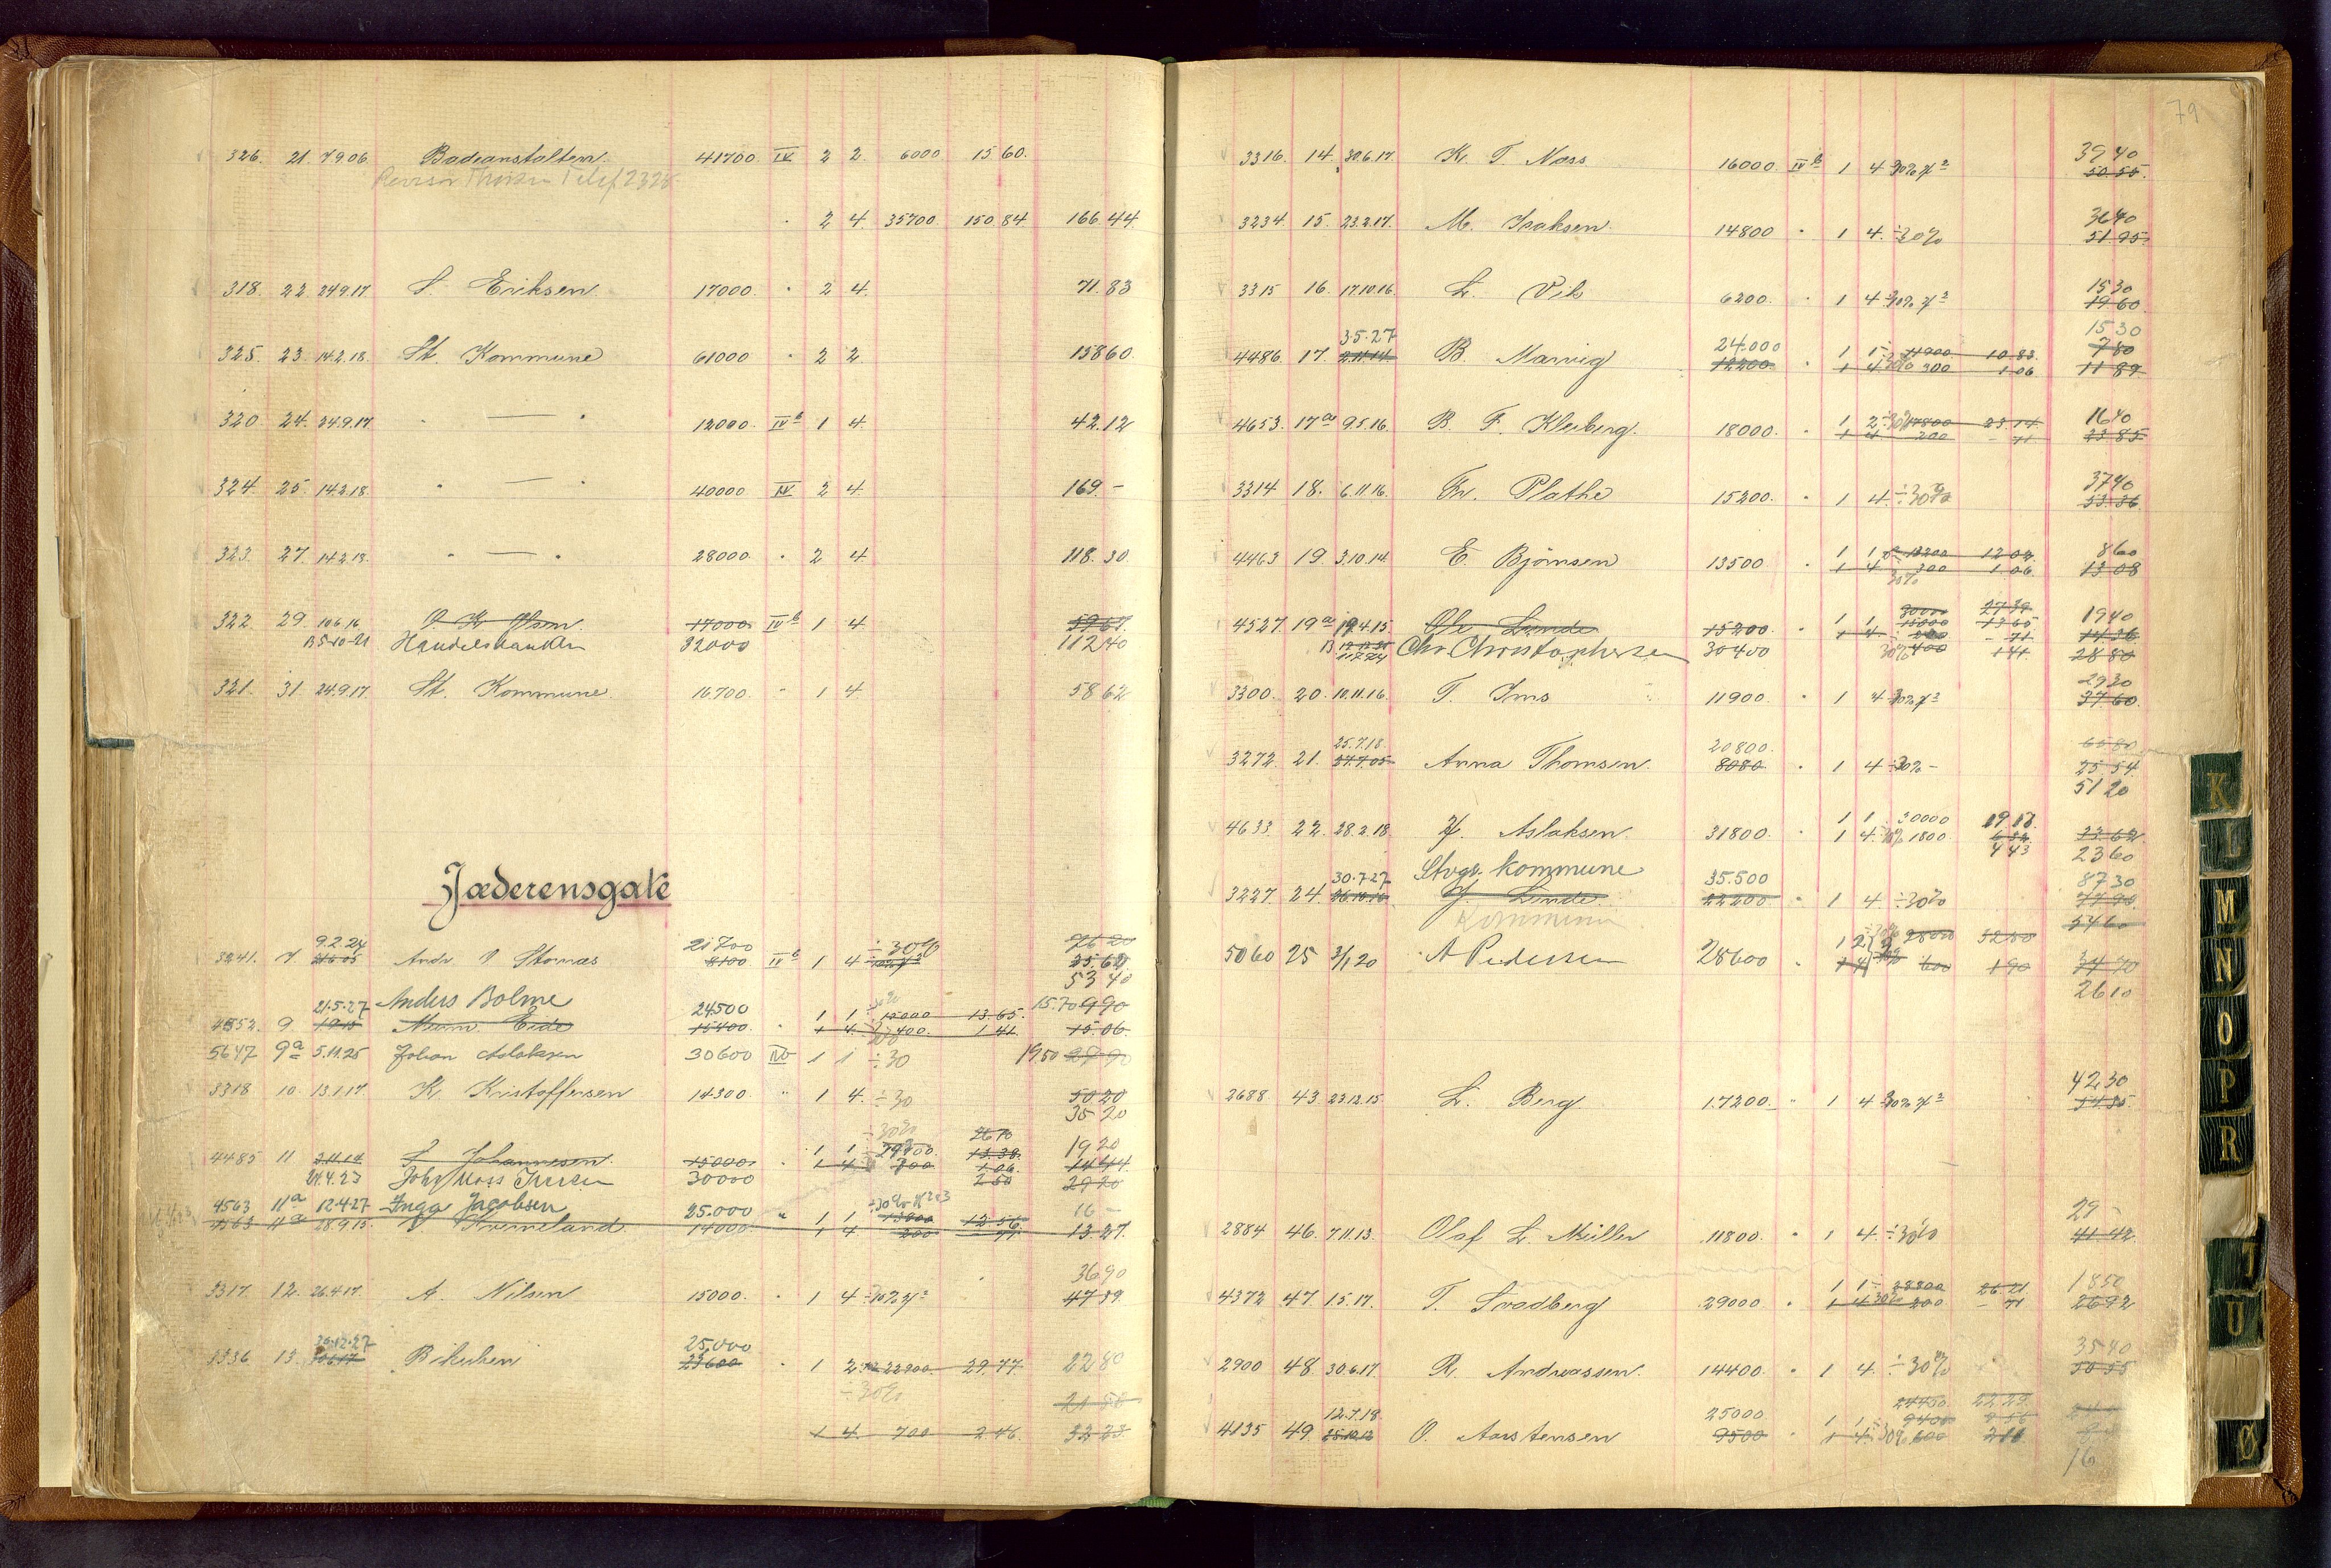 326. 21. 7.9.06. Badeanstalten. 41700. IV 2 2. 6000 15 60.
Telef 2328
" 2 4. 35700. 150.84. 166.44.
318. 22. 24.9.17. S. Eriksen. 17000. " 2 4. 71.83
325. 23. 14.2.18. St. Kommune 61000 " 2 2. 158 60.
320. 24. 24.9.17. " — " 12000. IVb 1 4. 42.12
324. 25. 14.2.18. " — " 40000 IV 2 4. 169.-
323. 27. 14.2.18. " — " 28000. " 2 4. 118.30.
322. 29. 10.6.16 O. K. Olsen. 17000. IVb 1 4. 59.67.
B 5-10-21 Handelsbanken 32000 112 40
321. 31. 24.9.17. St. Kommune. 16700. " 1 4. 58 62
Jæderensgate
9.2.24 21700 ÷30% 76 20
3241. 7. Andr. Stornæs 8100 IVb 1 4 35.62
53 40
21.5.27 Anders Bolme 24500 30% 15.70 9 90
4552. 9 Eide 15400. " 1 1 15000 13.65.
1 4. 400. 1 41. 15.06.
5647 9a 5.11.25 Johan Aslaksen 30600 IVb 1 1 ÷30 19.50 27 90
3318 10. 13.1.17. K. Kristoffersen 14300. " 1 4. ÷30 50 20
35 20
÷30% 26 18
4485 11 2.11.14 S. Johannesen. 15000. " 1 1 29700. 13.38. 19 20
1 4 300. 1 06. 14 44
21.4.23 Joh. Moss Iversen 30000 2 60 29 20
4563 11a 12.4.27 Inga Jacobsen 25.000 " ÷30% 16 -
4563 11a 28.9.15. Kverneland. 14000. 1 1 13800 12 56.
1 4 200 - 71. 13.27.
36 90
3317. 12. 26.4.17. A. Nilsen 15000. " 1 4 ÷10% 47 89.
30.12.27 25.000
3336 13. 30.6.17 Bikuben 23600 " 1 2 22900. 29.77. 22 80
÷30%
21 50
1 4. 700 2 46. 32 23.
79
3316. 14. 30.6.17. K. T. Næss 16000. IVb 1 4 30% 39 40
50.55.
3234. 15. 23.2.17. M. Isaksen. 14800 " 1 4. ÷30% 36 40
51 95.
3315 16. 17.10.16. L. Vik 6200. " 1 4 10% 15 30
19 60.
3.5.27 24.000 15 30
4486. 17. 2.11.14. B. Marvig 12200. " 1 1 11900 10 83. 7 80
1 4 30% 300 1 06 11 89
4653. 17a 9.5.16. B. F. Kleiberg. 18000. " 1 2 ÷30% 17800 23 14. 16 40
1 4 200 - 71 23 85
3314 18. 6.11.16. Fr. Plathe 15200. " 1 4. ÷30% 37 40
53.36.
4463 19 3.10.14. E. Bjørnsen 13500 " 1 1 13200 12 02. 8 60
1 4 300 1 06. 13 08
30%
30000 27 30
4527. 19a 19.4.15. Ole Lunde 15200. " 1 1 15000 13 65 19 40
1 4 200 - 71. 14 36
B Chr Christophersen 30400 30% 400 1 41. 28 80
29 30
3300. 20. 10.11.16. T. Ims 11900 " 1 4 10% 37 60.
25.7.18. 20800. 65 80
3272. 21. 27.7.05 Anna Thomsen. 8080. " 1 4 ÷30% - 25 54.
51 20
4633. 22. 28.2.18. Y. Aslaksen. 31800. " 1 1 30000 19 17.
1 4. 30% 1800 6 32 33 62
4 43 23 60
30.7.27 Stvgr. kommune 35.500 87 30
3227. 24. 26.10.16. J. Linde. 22200. " 1 4. ÷30% 77 90
Kommunen 54 60
5060 25 3/1 20 A Pedersen 28600 " 1 2 2800 32 50
1 4 600 1 90 34 40
26 10
42.30
2688 43. 23.12.15. L. Berg. 17200. " 1 4 30% 54 35.
29 -
2884 46. 7.11.13. Olaf L. Müller 11800. " 1 4. ÷30% 41 42.
4372 47. 1.5.17. T. Svadberg 29000. " 1 1 28800 26 21 18 50
1 4 30% 200 - 71 26 92
35 40
2900 48. 30.6.17. R. Andreassen. 14400. " 1 4. ÷30% 50 55
12.7.18. 25000 24400. 22 23.
4135 49. 25.10.12 O. Aarstensen 9500 " 1 1 9400 8 56
1 4 30% 600 2 11
16